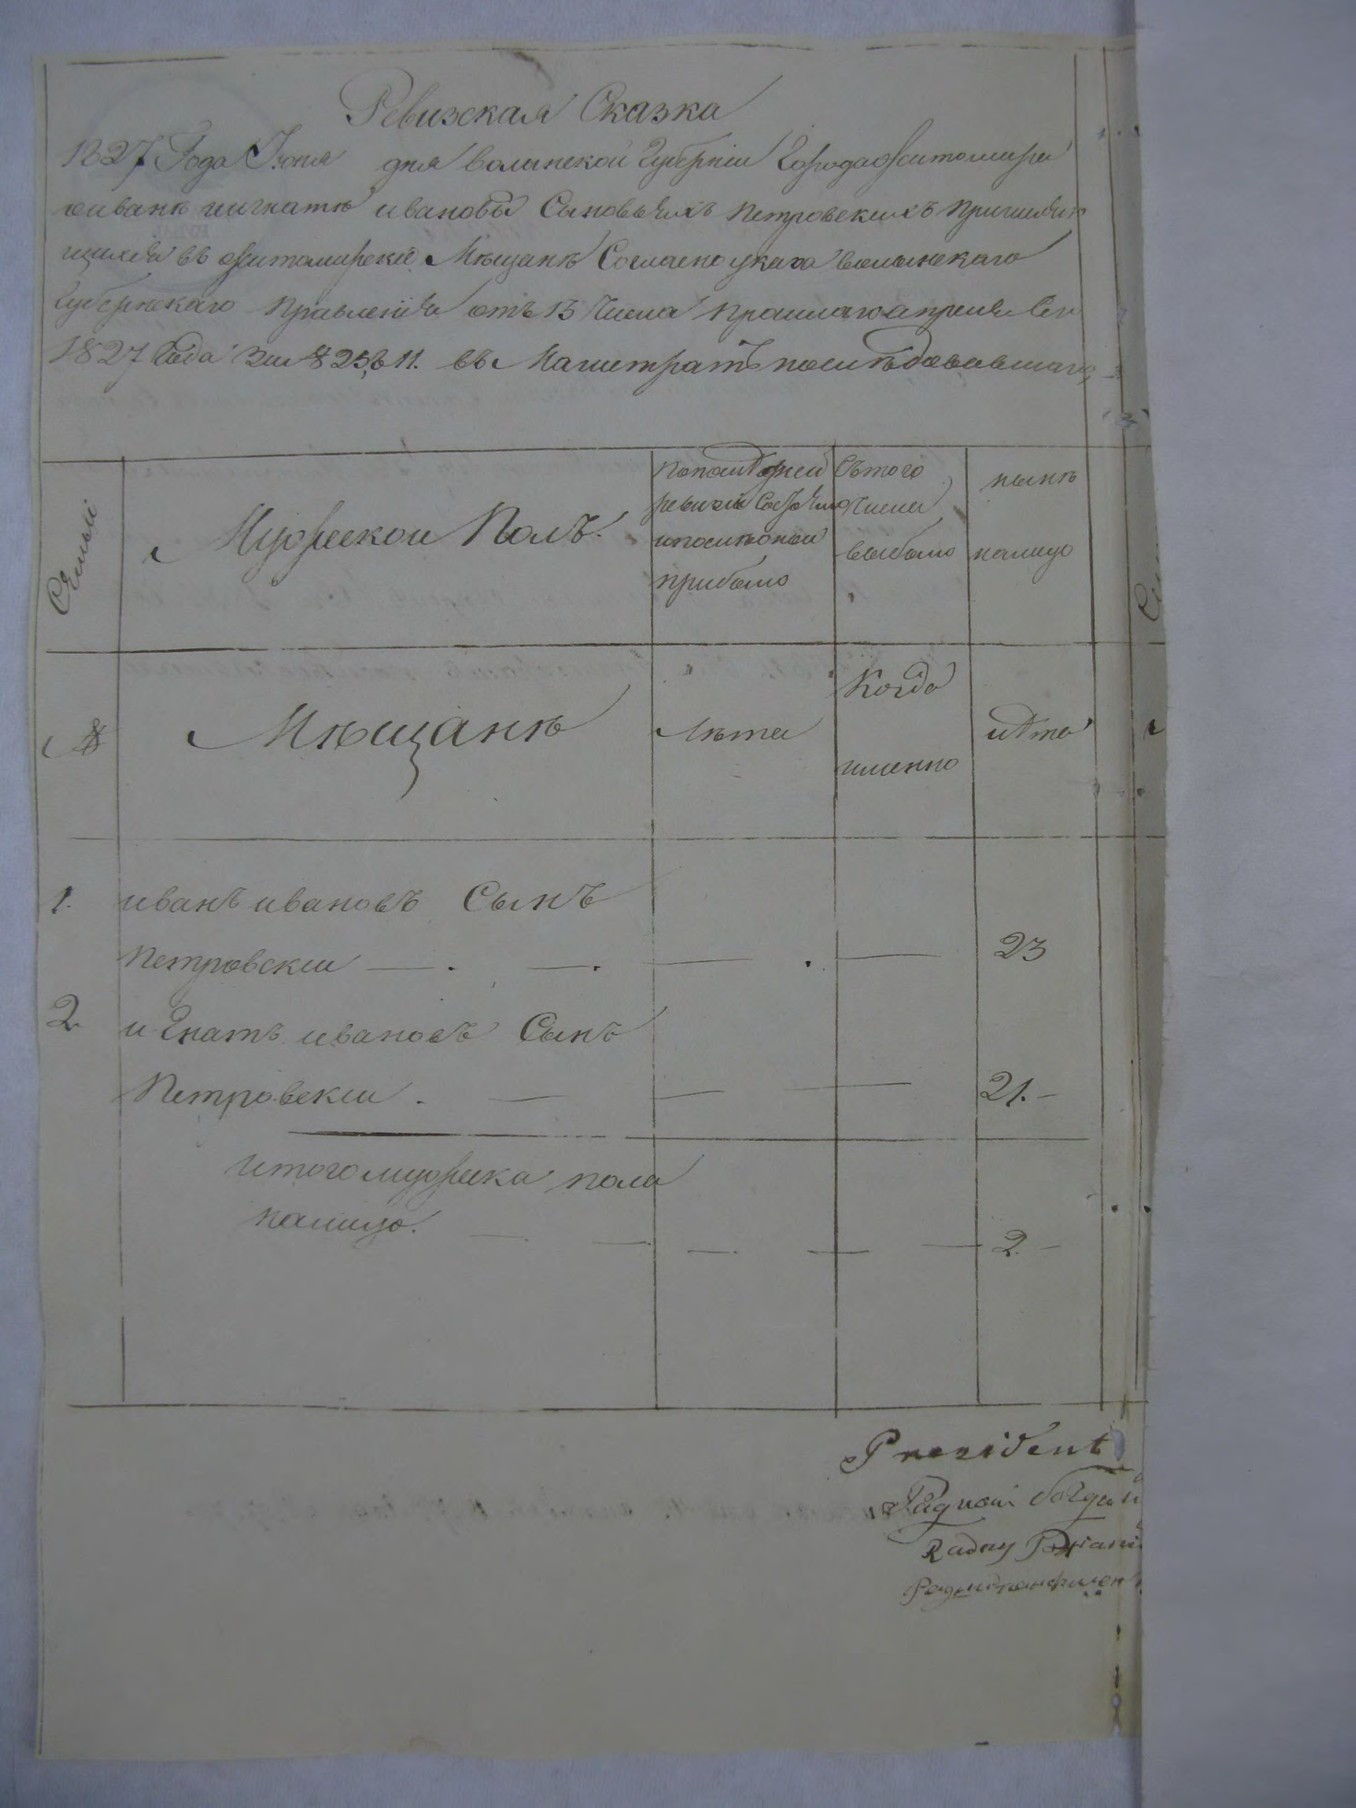 Ревизская Сказка
1827 Года Июня дня волынской Губернии Города Житомира
о иванѣ иигнатѣ ивановы Сыновьяхъ Петровскихъ Причисля
щихся въ житомирские Мѣщанѣ Согласно указа волынскаго
Губернскаго Правления отъ 13 Числа прошлаго апреля Сего
1827 Года за № 25,611. въ Магистратъ последовавшаго
Семьи
Мужескои Полъ.
попоследней
ревизии Состояло
ипоследней
прибыло
Сътого
числа
выбыло
нынѣ
налицо
№
Мѣщанѣ
Лѣта
Когда
именно
лѣта
1. иванъ ивановъ Сынъ
Петровскии — . — . — . — 23
2. иГнатъ ивановъ Сынъ
Петровскии . — — — 21. —
итого мужеска пола
налицо. — — — — — 2. —
Prezident
Радный
Radny